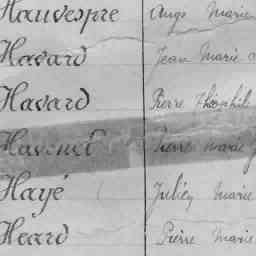 Hauvespre Ange Marie
Havard Jean Marie
Havard Pierre Théophile
Havenel Pierre Marie
Hayé Julien Marie
Heard Pierre Marie